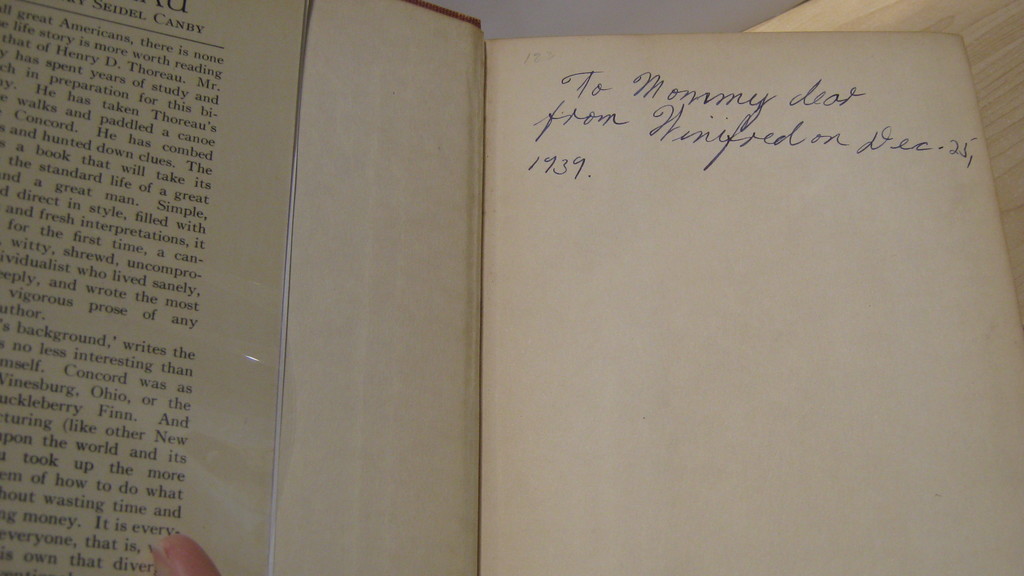 RY SEIDEL CANBY
all great Americans, there is none
life story is more worth reading
that of Henry D. Thoreau. Mr.
y has spent years of study and
ch in preparation for this bi-
y. He has taken Thoreau's
walks and paddled a canoe
Concord. He has combed
s and hunted down clues. The
s a book that will take its
the standard life of a great
and a great man. Simple,
d direct in style, filled with
and fresh interpretations, it
for the first time, a can-
, witty, shrewd, uncompro-
ividualist who lived sanely,
eeply, and wrote the most
vigorous prose of any
uthor.
's background,' writes the
s no less interesting than
mself. Concord was as
Winesburg, Ohio, or the
uckleberry Finn. And
cturing (like other New
upon the world and its
u took up the more
em of how to do what
hout wasting time and
ng money. It is every-
everyone, that is,
is own that diver
To Mommy dear
from Winifred on Dec. 25,
1939.